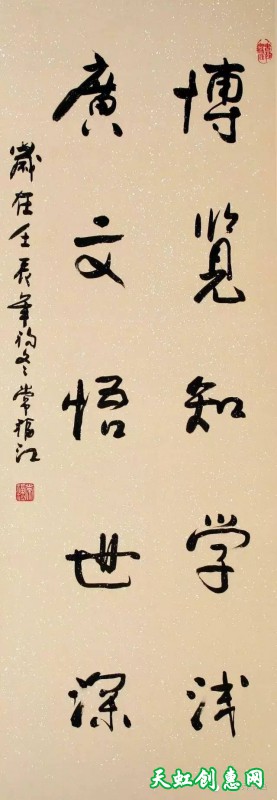 博览知学浅
廣文悟世深
歲在壬辰年初冬常福江
天虹创惠网